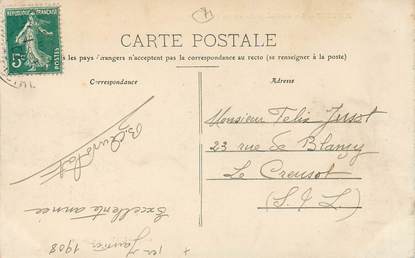 RÉPUBLIQUE FRANÇAISE
5c
POSTES
CARTE POSTALE
les pays étrangers n'acceptent pas la correspondance au recto (se renseigner à la poste)
Correspondance
Adresse
Monsieur Felix
23 rue de Blanzy
Le Creusot
(S. & L)
Excellente année
1er Janvier 1908